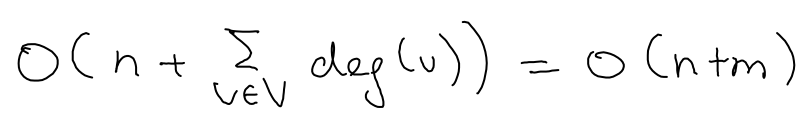 O(n + Σ_{v∈V} deg(v)) = O(n+m)